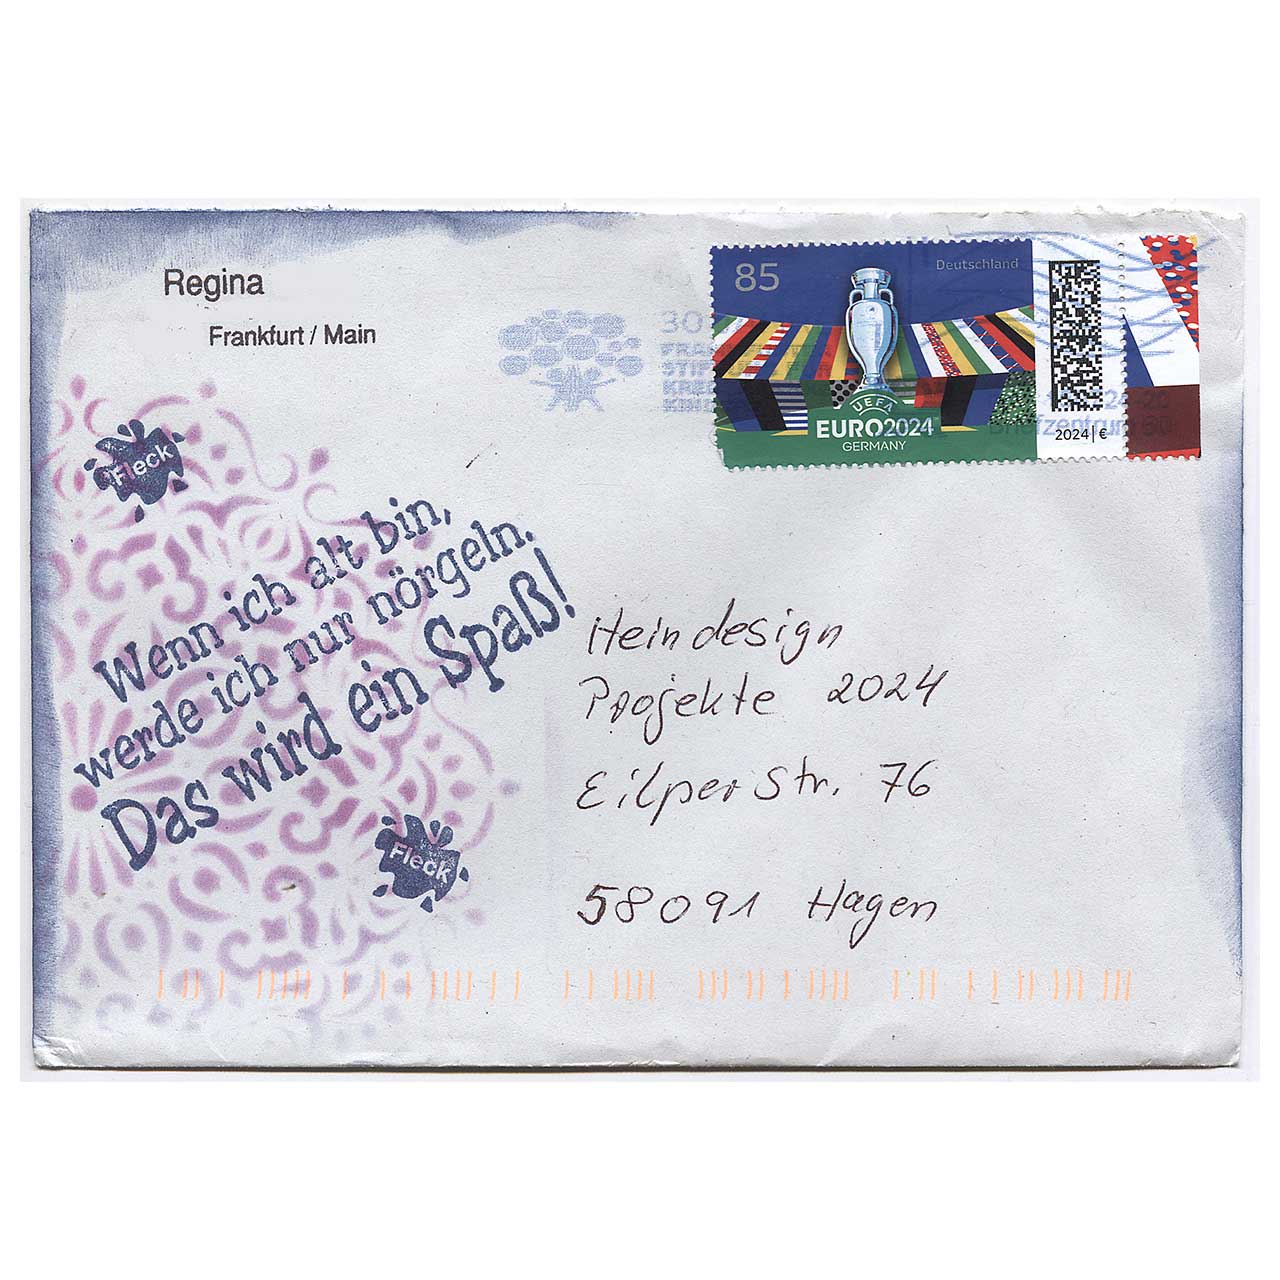 Regina
Frankfurt / Main
85
Deutschland
30
UEFA
EURO2024
GERMANY
2024 | €
Briefzentrum 60
Fleck
Wenn ich alt bin,
werde ich nur nörgeln.
Das wird ein Spaß!
Fleck
Heindesign
Projekte 2024
Eilper Str. 76
58091 Hagen